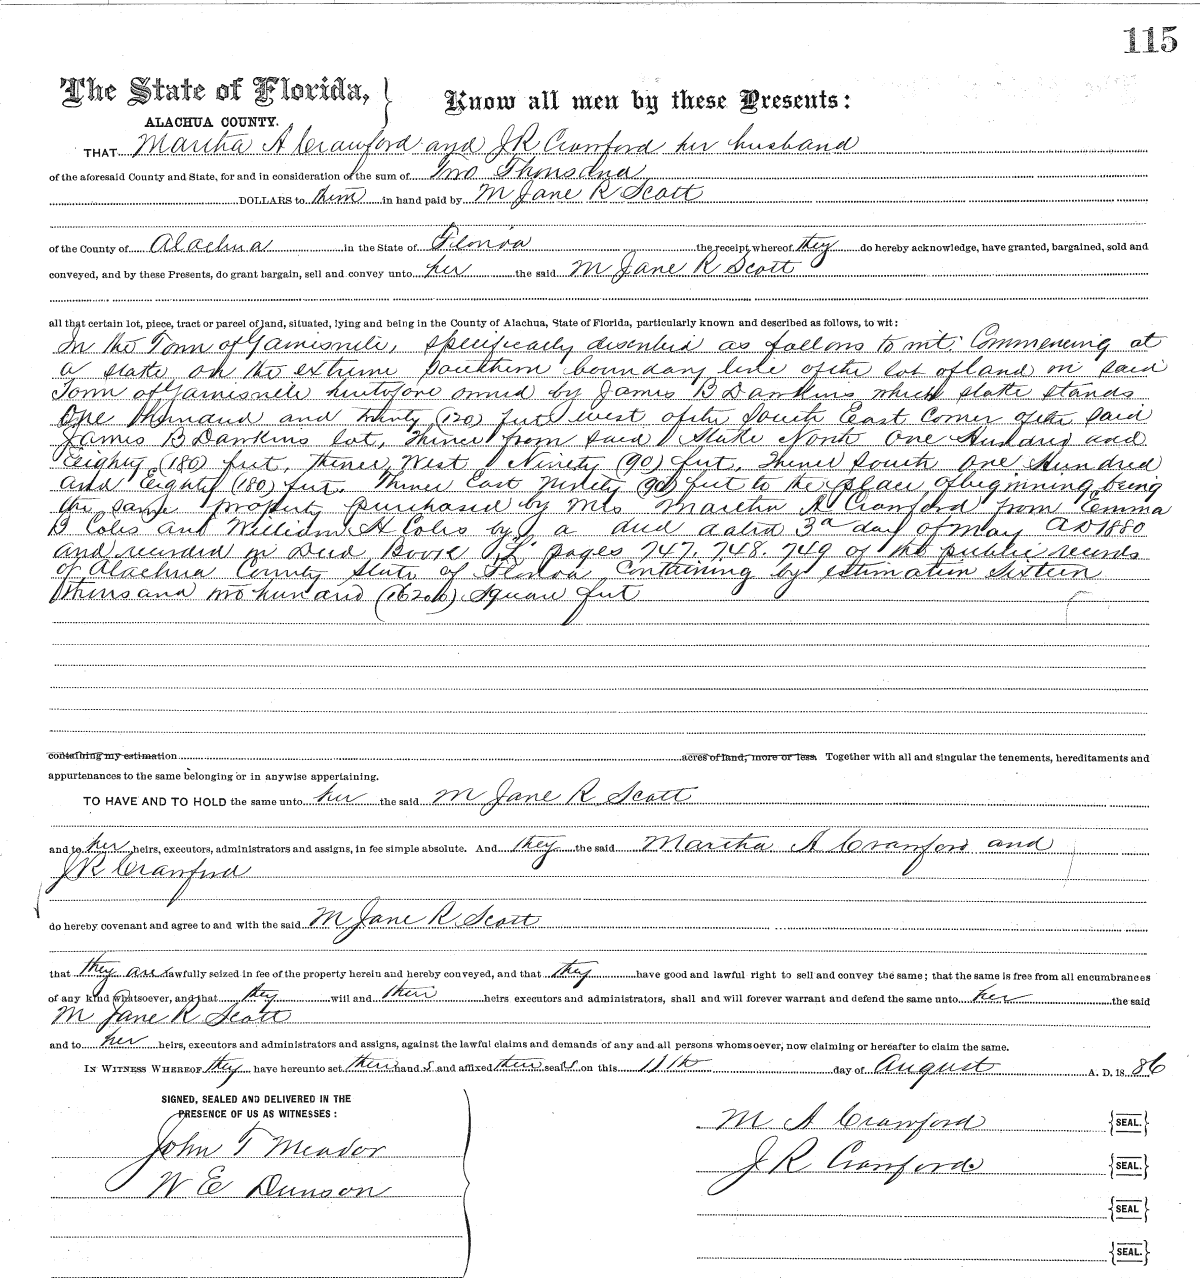 115
The State of Florida, Know all men by these Presents:
ALACHUA COUNTY.
THAT Martha A Crawford and J R Crawford her husband
of the aforesaid County and State, for and in consideration of the sum of Two Thousand
DOLLARS to them in hand paid by M Jane R Scott
of the County of Alachua in the State of Florida the receipt whereof they do hereby acknowledge, have granted, bargained, sold and
conveyed, and by these Presents, do grant bargain, sell and convey unto her the said M Jane R Scott
all that certain lot, piece, tract or parcel of land, situated, lying and being in the County of Alachua, State of Florida, particularly known and described as follows, to wit:
In the Town of Gainesville, specifically described as follows to wit: Commencing at
a stake on the extreme Southern boundary line of the lot of land in said
Town of Gainesville heretofore owned by James B Dawkins which stake stands
One Hundred and twenty (120) feet west of the South East Corner of the said
James B Dawkins lot, thence from said Stake North One Hundred and
Eighty (180) feet, thence West Ninety (90) feet, thence South One Hundred
and Eighty (180) feet. Thence East Ninety (90) feet to the place of beginning being
the same property purchased by Mrs Martha A Crawford from Emma
B Coles and William H Coles by a deed dated 3d day of May AD 1880
and recorded in Deed Book "L" pages 747. 748. 749 of the public records
of Alachua County State of Florida Containing by estimation Sixteen
thousand two hundred (16200) Square feet
containing my estimation acres of land, more or less Together with all and singular the tenements, hereditaments and
appurtenances to the same belonging or in anywise appertaining.
TO HAVE AND TO HOLD the same unto her the said M Jane R Scott
and to her heirs, executors, administrators and assigns, in fee simple absolute. And they the said Martha A Crawford and
J R Crawford
do hereby covenant and agree to and with the said M Jane R Scott
that they are lawfully seized in fee of the property herein and hereby conveyed, and that they have good and lawful right to sell and convey the same; that the same is free from all encumbrances
of any kind whatsoever, and that they will and their heirs executors and administrators, shall and will forever warrant and defend the same unto her the said
M Jane R Scott
and to her heirs, executors and administrators and assigns, against the lawful claims and demands of any and all persons whomsoever, now claiming or hereafter to claim the same.
IN WITNESS WHEREOF they have hereunto set their hand s and affixed their seal s on this 11th day of August A. D. 18 86
SIGNED, SEALED AND DELIVERED IN THE
PRESENCE OF US AS WITNESSES:
John T Meador
W E Dunson
M A Crawford SEAL.
J R Crawford SEAL.
SEAL
SEAL.